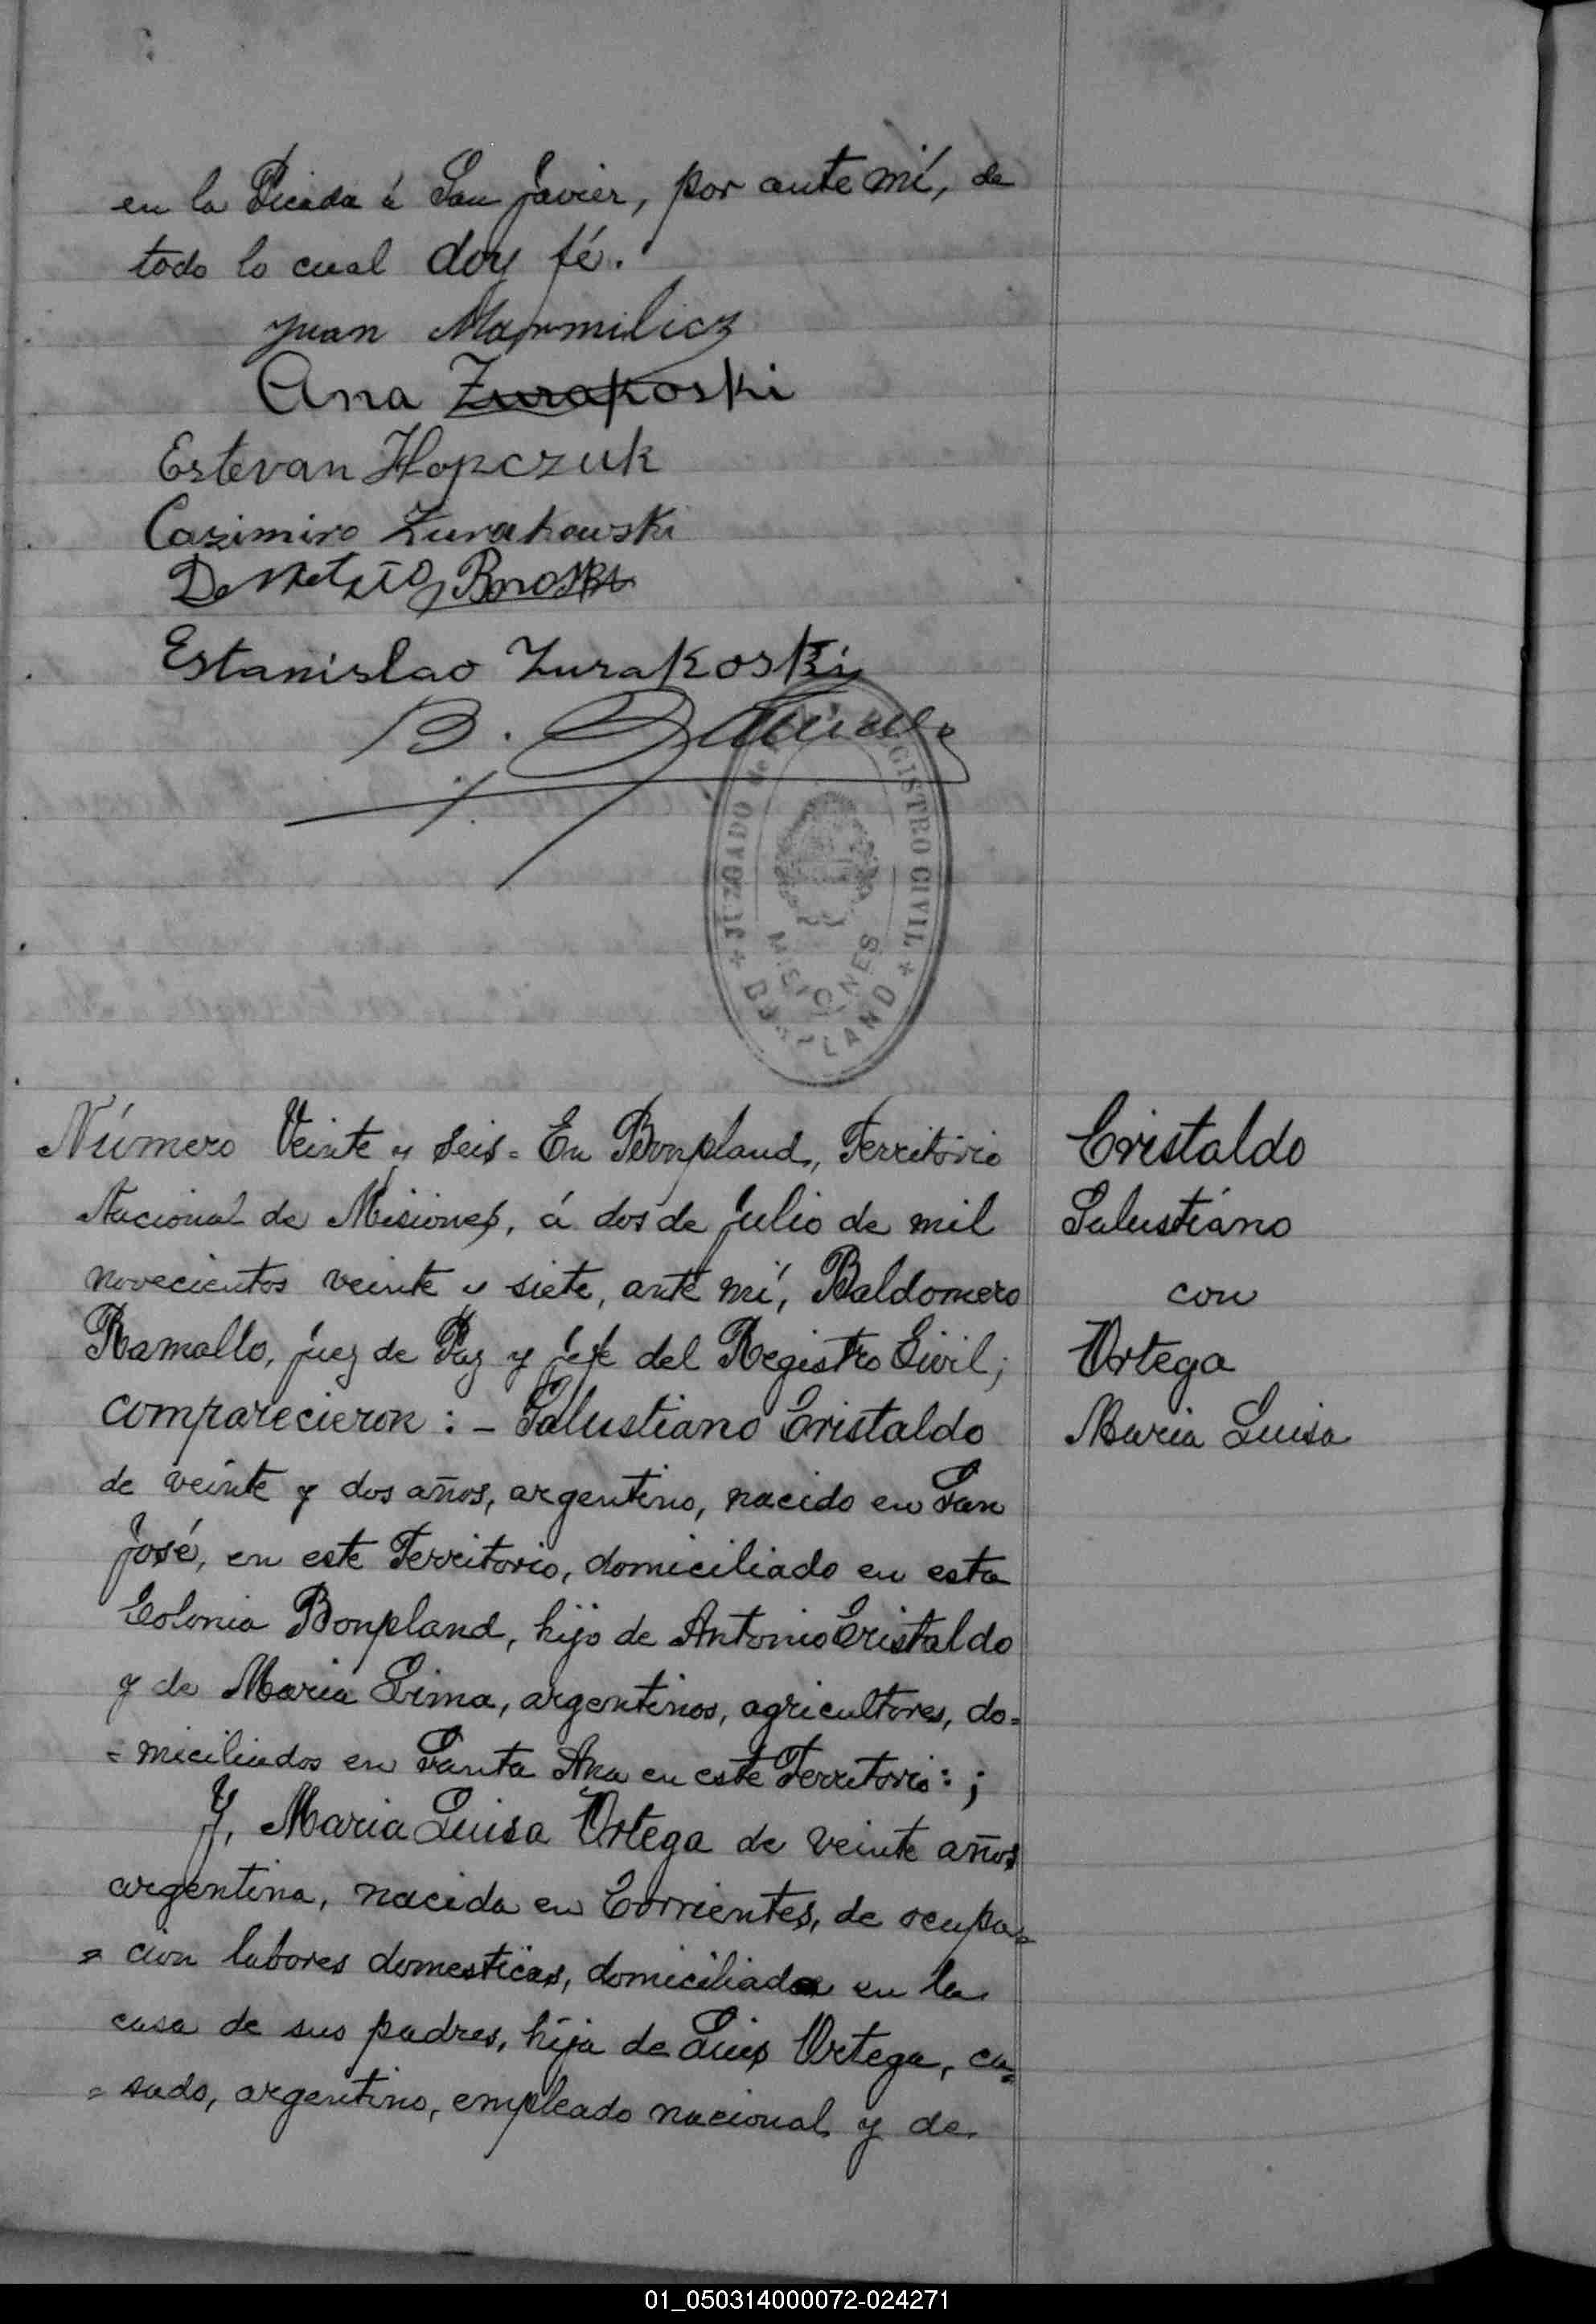 en la Picada á San Javier, por ante mí, de
todo lo cual doy fé.
Juan
Ana Zurakoski
Estevan Hopczuk
Cazimiro Zurakowski
Estanislao Zurakoski
B.
JUZGADO de REGISTRO CIVIL
MISIONES
* BONPLAND *
Número Veinte y seis = En Bonpland, Territorio
Nacional de Misiones, á dos de Julio de mil
novecientos veinte y siete, ante mí, Baldomero
Ramallo, juez de Paz y jefe del Registro Civil;
comparecieron : - Salustiano Cristaldo
de veinte y dos años, argentino, nacido en San
José, en este Territorio, domiciliado en esta
Colonia Bonpland, hijo de Antonio Cristaldo
y de Maria Lima, argentinos, agricultores, do=
= miciliados en Santa Ana en este Territorio : ;
Y, Maria Luisa Ortega de veinte años
argentina, nacida en Corrientes, de ocupa=
= cion labores domesticas, domiciliada en la
casa de sus padres, hija de Luis Ortega, ca=
= sado, argentino, empleado nacional y de
Cristaldo
Salustiano
con
Ortega
Maria Luisa
01_050314000072-024271